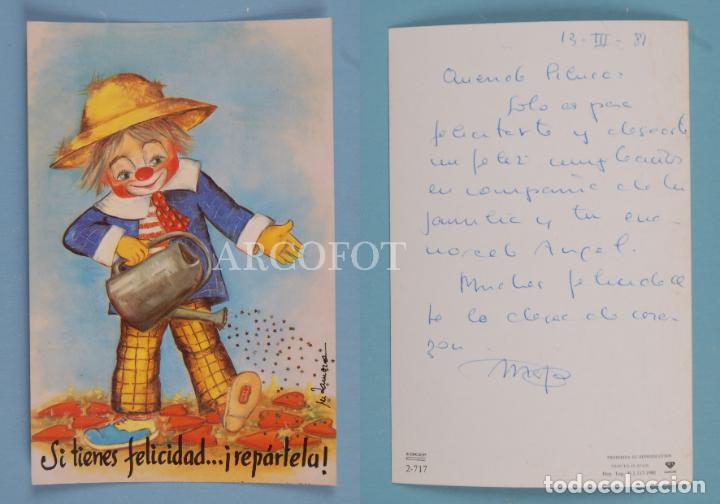 Si tienes felicidad...¡repártela!
ARCOFOT
13-III-81
Querida Piluca:
Solo es para
felicitarte y desearte
un feliz cumpleaños
en compañia de tu
familia y tu ena-
morado Angel.
Muchas felicidades
te lo desea de cora-
zon
2-717
PROHIBIDA SU REPRODUCCION
todocoleccion